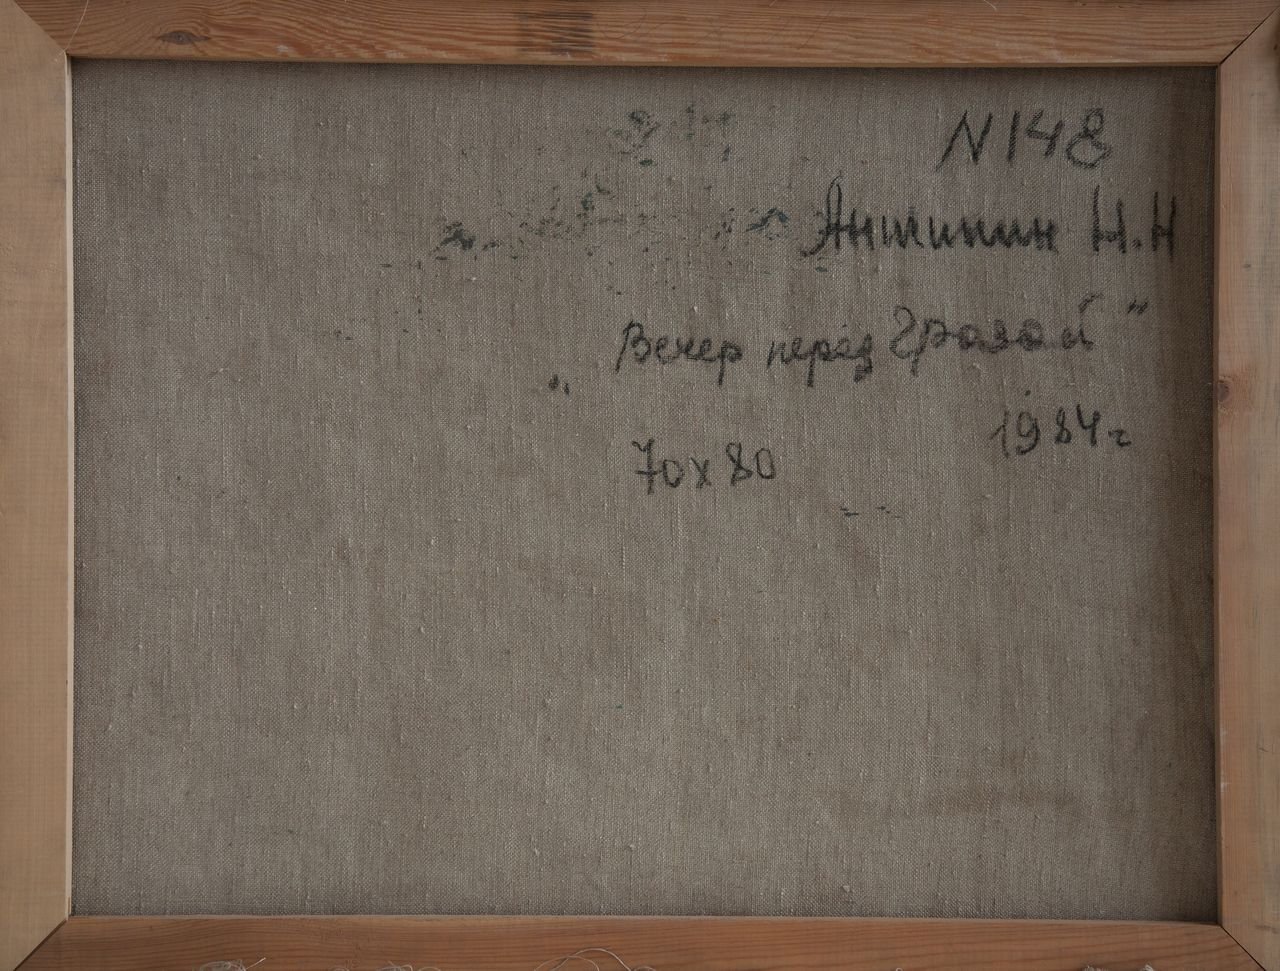 N148
Антипин Н.Н
„Вечер перед Грозой"
1984г
70х80